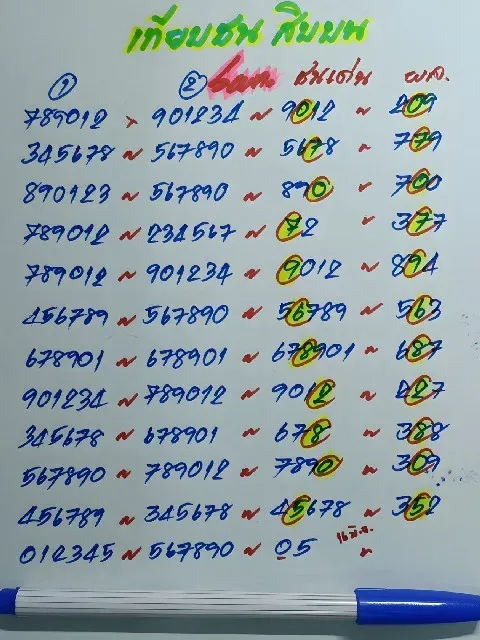 เทียบชน สิบบน
① ② ชนเด่น ผ.ล.
789012 ~ 901234 ~ 9012 ~ 209
345678 ~ 567890 ~ 5678 ~ 779
890123 ~ 567890 ~ 890 ~ 700
789012 ~ 234567 ~ 72 ~ 377
789012 ~ 901234 ~ 9012 ~ 894
456789 ~ 567890 ~ 56789 ~ 563
678901 ~ 678901 ~ 678901 ~ 687
901234 ~ 789012 ~ 9012 ~ 427
345678 ~ 678901 ~ 678 ~ 388
567890 ~ 789012 ~ 7890 ~ 309
456789 ~ 345678 ~ 45678 ~ 352
012345 ~ 567890 ~ 05 16 มิ.ย. ~